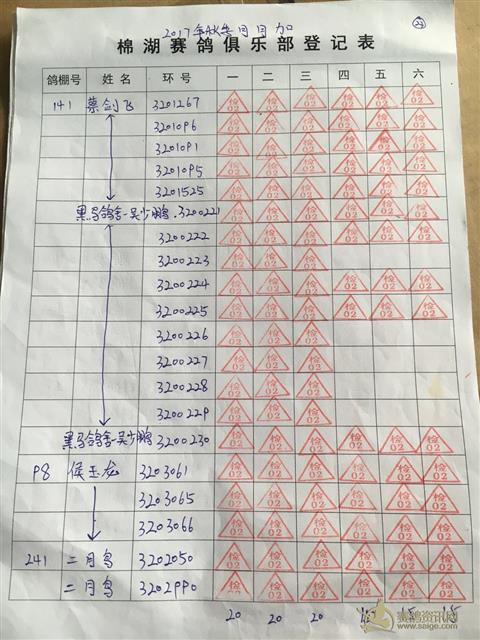 2017年
23
棉湖赛鸽俱乐部登记表
鸽棚号 姓名 环号 一 二 三 四 五 六
141 蔡剑飞 3201267 检02 检02 检02 检02 检02 检02
3201096 检02 检02 检02 检02 检02 检02
3201091 检02 检02 检02 检02 检02 检02
3201095 检02 检02 检02 检02 检02 检02
3201525 检02 检02 检02 检02 检02 检02
黑马鸽舍-吴少鹏 3200221 检02 检02 检02 检02 检02 检02
3200222 检02 检02 检02 检02 检02 检02
3200223 检02 检02 检02
3200224 检02 检02 检02 检02 检02 检02
3200225 检02 检02 检02 检02 检02 检02
3200226 检02 检02 检02
3200227 检02 检02 检02
3200228 检02 检02 检02
3200229 检02 检02 检02
黑马鸽舍-吴少鹏 3200230 检02 检02 检02 检02 检02 检02
P8 侯玉龙 3203061 检02 检02 检02 检02 检02 检02
3203065 检02 检02 检02 检02 检02 检02
3203066 检02 检02 检02 检02 检02 检02
241 二月鸟 3202050 检02 检02 检02 检02 检02 检02
二月鸟 3202990 检02 检02 检02 检02 检02 检02
20 20 20 15 15
赛鸽资讯网
www.saige.com